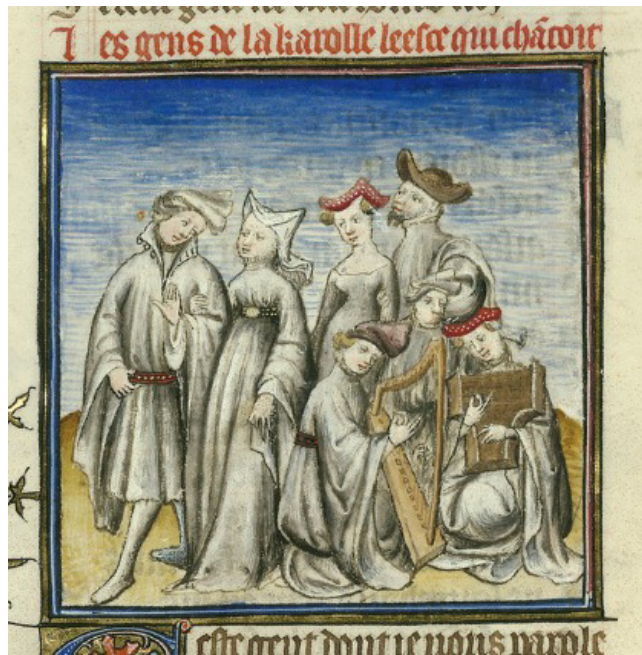 Les gens de la karolle leesce qui chãtoit
este gent dont ie uous parole